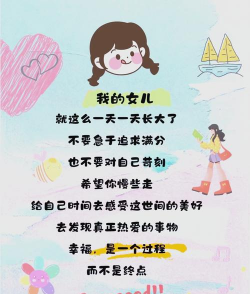 我的女儿
就这么一天一天长大了
不要急于追求满分
也不要对自己苛刻
希望你慢些走
给自己时间去感受这世间的美好
去发现真正热爱的事物
幸福，是一个过程
而不是终点